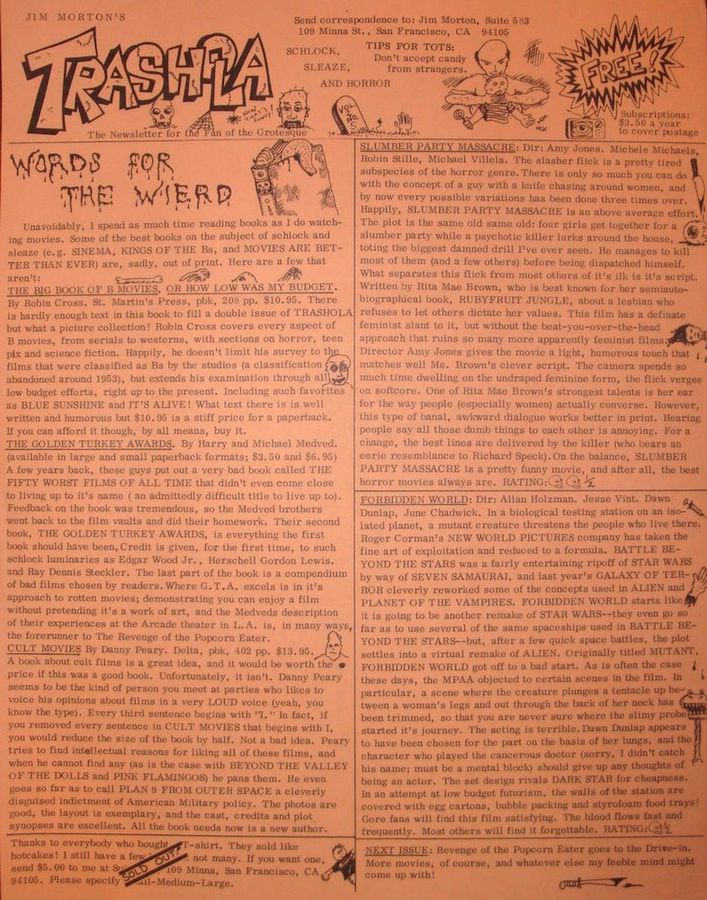 JIM MORTON'S
TRASHOLA
The Newsletter for the Fan of the Grotesque
SCHLOCK,
SLEAZE,
AND HORROR
Send correspondence to: Jim Morton, Suite 583
109 Minna St., San Francisco, CA 94105
TIPS FOR TOTS:
Don't accept candy
from strangers.
FREE!
Subscriptions:
$3.50 a year
to cover postage
WORDS FOR
THE WIERD
Unavoidably, I spend as much time reading books as I do watch-
ing movies. Some of the best books on the subject of schlock and
sleaze (e.g. SINEMA, KINGS OF THE Bs, and MOVIES ARE BET-
TER THAN EVER) are, sadly, out of print. Here are a few that
aren't:
THE BIG BOOK OF B MOVIES, OR HOW LOW WAS MY BUDGET.
By Robin Cross. St. Martin's Press, pbk, 208 pp. $10.95. There
is hardly enough text in this book to fill a double issue of TRASHOLA
but what a picture collection! Robin Cross covers every aspect of
B movies, from serials to westerns, with sections on horror, teen
pix and science fiction. Happily, he doesn't limit his survey to the
films that were classified as Bs by the studios (a classification
abandoned around 1953), but extends his examination through all
low budget efforts, right up to the present. Including such favorites
as BLUE SUNSHINE and IT'S ALIVE! What text there is is well
written and humorous but $10.95 is a stiff price for a paperback.
If you can afford it though, by all means, buy it.
THE GOLDEN TURKEY AWARDS, By Harry and Michael Medved.
(available in large and small paperback formats; $3.50 and $6.95)
A few years back, these guys put out a very bad book called THE
FIFTY WORST FILMS OF ALL TIME that didn't even come close
to living up to it's name ( an admittedly difficult title to live up to).
Feedback on the book was tremendous, so the Medved brothers
went back to the film vaults and did their homework. Their second
book, THE GOLDEN TURKEY AWARDS, is everything the first
book should have been, Credit is given, for the first time, to such
schlock luminaries as Edgar Wood Jr., Herschell Gordon Lewis.
and Ray Dennis Steckler. The last part of the book is a compendium
of bad films chosen by readers. Where G.T.A. excels is in it's
approach to rotten movies; demonstrating you can enjoy a film
without pretending it's a work of art, and the Medveds description
of their experiences at the Arcade theater in L.A. is, in many ways,
the forerunner to The Revenge of the Popcorn Eater.
CULT MOVIES By Danny Peary. Delta, pbk, 402 pp. $13.95.
A book about cult films is a great idea, and it would be worth the
price if this was a good book. Unfortunately, it isn't. Danny Peary
seems to be the kind of person you meet at parties who likes to
voice his opinions about films in a very LOUD voice (yeah, you
know the type). Every third sentence begins with "I." In fact, if
you removed every sentence in CULT MOVIES that begins with I,
you would reduce the size of the book by half. Not a bad idea. Peary
tries to find intellectual reasons for liking all of these films, and
when he cannot find any (as is the case with BEYOND THE VALLEY
OF THE DOLLS and PINK FLAMINGOS) he pans them. He even
goes so far as to call PLAN 9 FROM OUTER SPACE a cleverly
disguised indictment of American Military policy. The photos are
good, the layout is exemplary, and the cast, credits and plot
synopses are excellent. All the book needs now is a new author.
Thanks to everybody who bought T-shirt. They sold like
hotcakes! I still have a few not many. If you want one,
send $5.00 to me at 109 Minna, San Francisco, CA
94105. Please specify -Medium-Large.
SOLD OUT!
SLUMBER PARTY MASSACRE: Dir: Amy Jones. Michele Michaels,
Robin Stille, Michael Villela. The slasher flick is a pretty tired
subspecies of the horror genre. There is only so much you can do
with the concept of a guy with a knife chasing around women, and
by now every possible variations has been done three times over.
Happily, SLUMBER PARTY MASSACRE is an above average effort.
The plot is the same old same old: four girls get together for a
slumber party while a psychotic killer lurks around the house,
toting the biggest damned drill I've ever seen. He manages to kill
most of them (and a few others) before being dispatched himself.
What separates this flick from most others of it's ilk is it's script.
Written by Rita Mae Brown, who is best known for her semiauto-
biographical book, RUBYFRUIT JUNGLE, about a lesbian who
refuses to let others dictate her values. This film has a definate
feminist slant to it, but without the beat-you-over-the-head
approach that ruins so many more apparently feminist films.
Director Amy Jones gives the movie a light, humorous touch that
matches well Ms. Brown's clever script. The camera spends so
much time dwelling on the undraped feminine form, the flick verges
on softcore. One of Rita Mae Brown's strongest talents is her ear
for the way people (especially women) actually converse. However,
this type of banal, awkward dialogue works better in print. Hearing
people say all those dumb things to each other is annoying. For a
change, the best lines are delivered by the killer (who bears an
eerie resemblance to Richard Speck). On the balance, SLUMBER
PARTY MASSACRE is a pretty funny movie, and after all, the best
horror movies always are. RATING:
FORBIDDEN WORLD: Dir: Allan Holzman. Jesse Vint. Dawn
Dunlap, June Chadwick. In a biological testing station on an iso-
lated planet, a mutant creature threatens the people who live there.
Roger Corman's NEW WORLD PICTURES company has taken the
fine art of exploitation and reduced to a formula. BATTLE BE-
YOND THE STARS was a fairly entertaining ripoff of STAR WARS
by way of SEVEN SAMAURAI, and last year's GALAXY OF TER-
ROR cleverly reworked some of the concepts used in ALIEN and
PLANET OF THE VAMPIRES. FORBIDDEN WORLD starts like
it is going to be another remake of STAR WARS--they even go so
far as to use several of the same spaceships used in BATTLE BE-
YOND THE STARS--but, after a few quick space battles, the plot
settles into a virtual remake of ALIEN. Originally titled MUTANT,
FORBIDDEN WORLD got off to a bad start. As is often the case
these days, the MPAA objected to certain scenes in the film. In
particular, a scene where the creature plunges a tentacle up be-
tween a woman's legs and out through the back of her neck has
been trimmed, so that you are never sure where the slimy probe
started it's journey. The acting is terrible. Dawn Dunlap appears
to have been chosen for the part on the basis of her lungs, and the
character who played the cancerous doctor (sorry, I didn't catch
his name; must be a mental block) should give up any thoughts of
being an actor. The set design rivals DARK STAR for cheapness.
In an attempt at low budget futurism, the walls of the station are
covered with egg cartons, bubble packing and styrofoam food trays!
Gore fans will find this film satisfying. The blood flows fast and
frequently. Most others will find it forgettable. RATING:
NEXT ISSUE: Revenge of the Popcorn Eater goes to the Drive-in.
More movies, of course, and whatever else my feeble mind might
come up with!